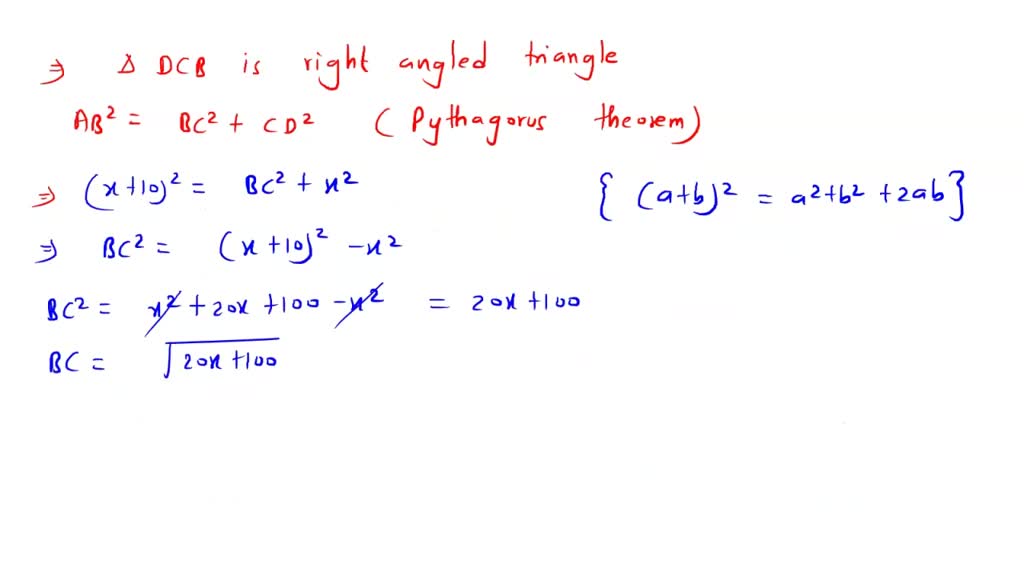 ⇒ Δ DCB is right angled triangle
AB² = BC² + CD² (Pythagorus theorem)
⇒ (x+10)² = BC² + x² {(a+b)² = a²+b² +2ab}
⇒ BC² = (x+10)² -x²
BC² = x² + 20x +100 -x² = 20x +100
BC = √20x +100